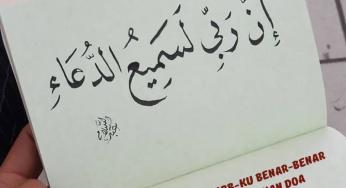 إِنَّ رَبِّي لَسَمِيعُ الدُّعَاءِ
BB-KU BENAR-BENAR
AN DOA